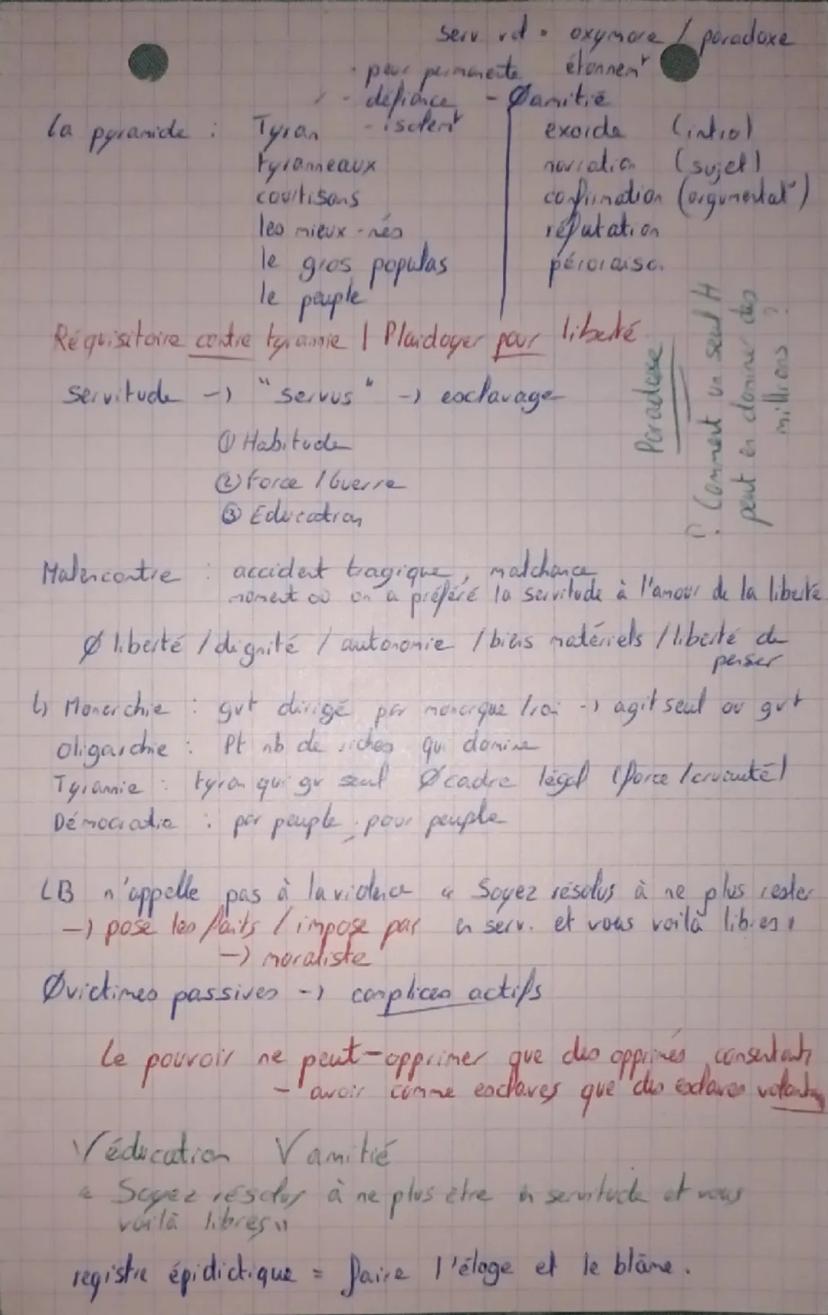 serv vol = oxymore / paradoxe
- peur permanente étonnemt
- défiance - Øamitié
- isolemt
La pyramide : Tyran
tyranneaux
courtisans
les mieux-nés
le gros populas
le peuple
exorde (intro)
narration (sujet)
confirmation (argumentat°)
réfutation
péroraiso.
Réquisitoire contre tyrannie / Plaidoyer pour liberté
Paradoxe
? Comment un seul H
peut en dominer des
millions ?
Servitude -> "servus" -> esclavage
① Habitude
② Force / Guerre
③ Education
Malencontre : accident tragique, malchance
moment où on a préféré la servitude à l'amour de la liberté
Ø liberté / dignité / autonomie / biens matériels / liberté de
penser
L) Monarchie : gvt dirigé par monarque / roi -> agit seul ou gvt
Oligarchie : Pt nb de riches qui domine
Tyrannie : tyran qui gv seul Øcadre légal (force / cruauté)
Démocratie : par peuple, pour peuple
LB n'appelle pas à la violence « Soyez résolus à ne plus rester
en serv. et vous voilà libres »
-> pose les faits / impose pas
-> moraliste
Øvictimes passives -> complices actifs
Le pouvoir ne peut-opprimer que des opprimés consentants
- avoir comme esclaves que des esclaves volontaires
V éducation V amitié
« Soyez résolus à ne plus être en servitude et vous
voilà libres »
registre épidictique = faire l'éloge et le blâme.